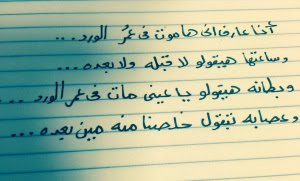 أنا عارف انى هاموت فى عمر الورد ...
وساعتها هيقولو لا قبله ولا بعده ...
وبطانه هيقولو يا عينى مات فى عمر الورد ...
وعصابه تقول خلصنا منه مين بعيده ...